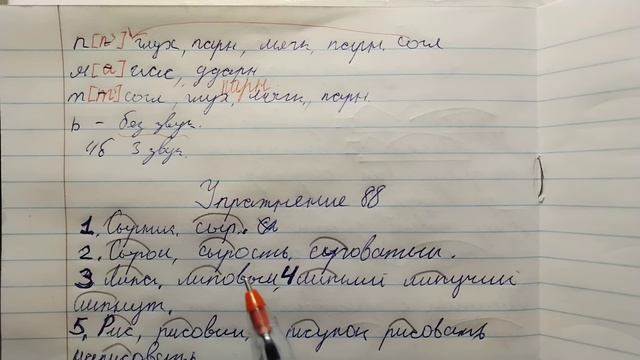 п [п'] глух, парн, мягк, парн. согл
я [а] глас, ударн
т [т'] согл, глух, парн мягк, парн.
ь - без звук.
4б 3 звук.
Упражнение 88
1. Сырник, сыр.
2. Сырой, сырость, сыроватый.
3 Липа, липовый, 4 липкий липучий
липнут.
5. Рис, рисовый, рисунок рисовать
нарисовать